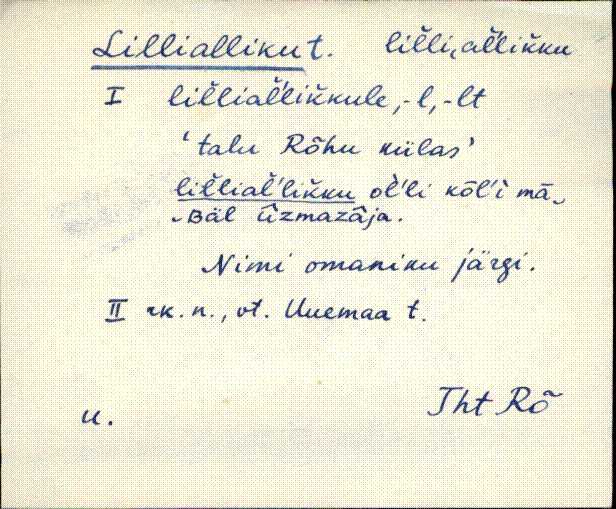 Lilliallikut. lil̆li‿al̆likku
I lil̆lial̆'lik̆kule, -l, -lt
'talu Rõhu külas'
lil̆lial̆'lik̆ku ol̆'li kōl'i mā‿
‿Bäl ûzmazâja.
Nimi omaniku järgi.
II rk. n., vt. Uuemaa t.
u. Tht Rõ